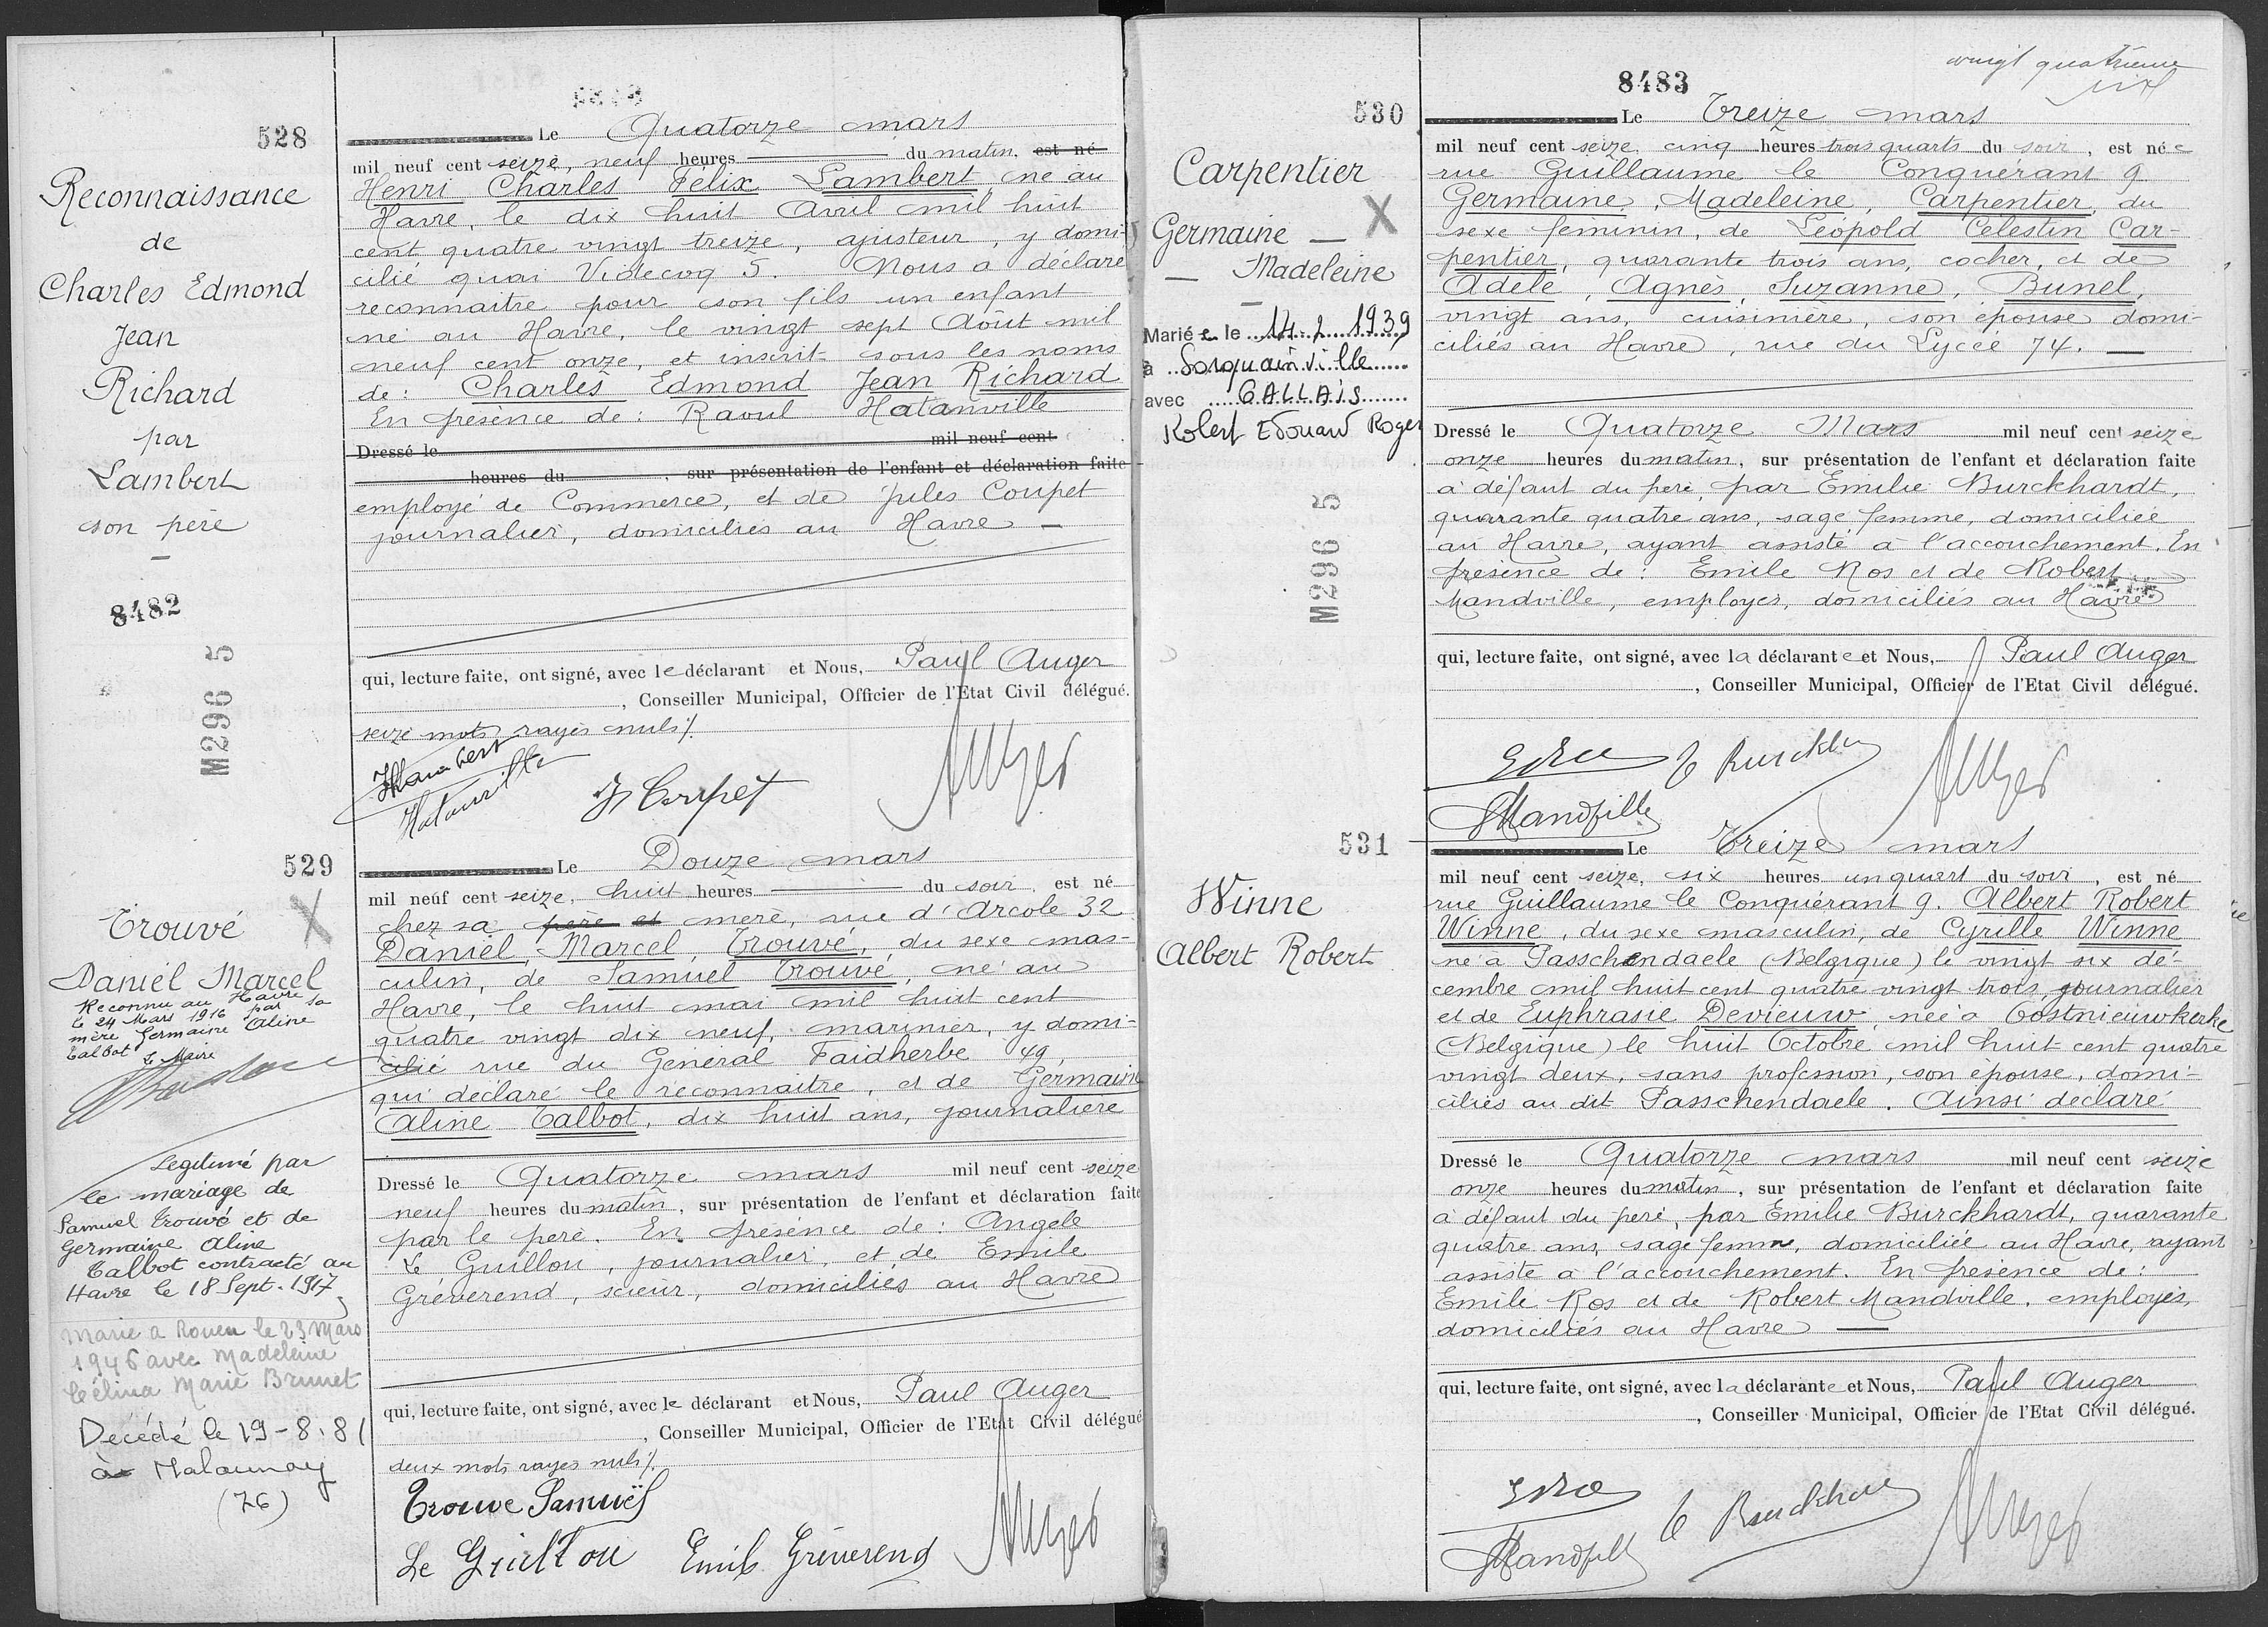 528
Reconnaissance
de
Charles Edmond
Jean
Richard
par
Lambert
son père
8482
M296 5
Le Quatorze mars
mil neuf cent seize, neuf heures du matin, est né
Henri Charles Félix Lambert, né au
Havre, le dix huit Avril mil huit
cent quatre vingt treize, ajusteur, y domi-
cilié quai Videcoq 5. Nous a déclaré
reconnaitre pour son fils un enfant
né au Havre, le vingt sept Août mil
neuf cent onze, et inscrit sous les noms
de : Charles Edmond Jean Richard
En présence de : Raoul Hatanville
Dressé le mil neuf cent
heures du , sur présentation de l'enfant et déclaration faite
employé de Commerce, et de Jules Coupet
journalier, domiciliés au Havre —
qui, lecture faite, ont signé, avec le déclarant et Nous, Paul Auger
, Conseiller Municipal, Officier de l'Etat Civil délégué.
seize mots rayés nuls /.
HLambert
Hatanville
J Coupet
Auger
529
Trouvé
Daniel Marcel
Reconnu au Havre
le 24 Mars 1916 par sa
mère Germaine Aline
Talbot
Le Maire
Légitimé par
le mariage de
Samuel Trouvé et de
Germaine Aline
Talbot contracté au
Havre le 18 Sept. 1917
Marié à Rouen le 23 Mars
1946 avec Madeleine
Célina Marie Brunet
Décédé le 19-8-81
à Malaunay
(76)
Le Douze mars
mil neuf cent seize, huit heures du soir, est né
chez sa père et mère, rue d'Arcole 32
Daniel, Marcel, Trouvé, du sexe mas-
culin, de Samuel Trouvé, né au
Havre, le huit mai mil huit cent
quatre vingt dix neuf, marinier, y domi-
cilié rue du Général Faidherbe 49,
qui déclare le reconnaitre, et de Germaine
Aline Talbot, dix huit ans, journalière
Dressé le Quatorze mars mil neuf cent seize
neuf heures du matin, sur présentation de l'enfant et déclaration faite
par le père. En présence de : Angèle
Le Guillou, journalier, et de Emile
Gréverend, scieur, domiciliés au Havre
qui, lecture faite, ont signé, avec le déclarant et Nous, Paul Auger
, Conseiller Municipal, Officier de l'Etat Civil délégué
deux mots rayés nuls /.
Trouve Samuël
Le Guillou Emile Gréverend Auger
vingt quatrième
8483
530
Carpentier
Germaine —
— Madeleine
Mariée le 14. 2. 1939
à Sorquainville
avec GALLAIS
Robert Edouard Roger
M296 5
Le Treize mars
mil neuf cent seize, cinq heures trois quarts du soir, est née
rue Guillaume le Conquérant 9
Germaine, Madeleine, Carpentier, du
sexe féminin, de Léopold Célestin Car-
pentier, quarante trois ans, cocher, et de
Adèle, Agnès, Suzanne, Bunel,
vingt ans, cuisinière, son épouse domi-
ciliés au Havre, rue du Lycée 74. —
Dressé le Quatorze Mars mil neuf cent seize
onze heures du matin, sur présentation de l'enfant et déclaration faite
à défaut du père, par Emilie Burckhardt,
quarante quatre ans, sage femme, domiciliée
au Havre, ayant assisté à l'accouchement. En
présence de : Emile Ros et de Robert
Mandville, employés, domiciliés au Havre
qui, lecture faite, ont signé, avec la déclarante et Nous, Paul Auger
, Conseiller Municipal, Officier de l'Etat Civil délégué.
ERos E Burckha
Mandville Auger
531
Winne
Albert Robert
Le Treize mars
mil neuf cent seize, six heures un quart du soir, est né
rue Guillaume le Conquérant 9. Albert Robert
Winne, du sexe masculin, de Cyrille Winne
né à Passchendaele (Belgique) le vingt six dé-
cembre mil huit cent quatre vingt trois, journalier
et de Euphrasie Devieuw, née à Oostnieuwkerke
(Belgique) le huit Octobre mil huit cent quatre
vingt deux, sans profession, son épouse, domi-
ciliés au dit Passchendaele. Ainsi déclaré
Dressé le Quatorze mars mil neuf cent seize
onze heures du matin, sur présentation de l'enfant et déclaration faite
à défaut du père, par Emilie Burckhardt, quarante
quatre ans, sage femme, domiciliée au Havre, ayant
assisté à l'accouchement. En présence de :
Emile Ros et de Robert Mandville, employés,
domiciliés au Havre —
qui, lecture faite, ont signé, avec la déclarante et Nous, Paul Auger
, Conseiller Municipal, Officier de l'Etat Civil délégué.
ERos E Burckha
Mandville Auger